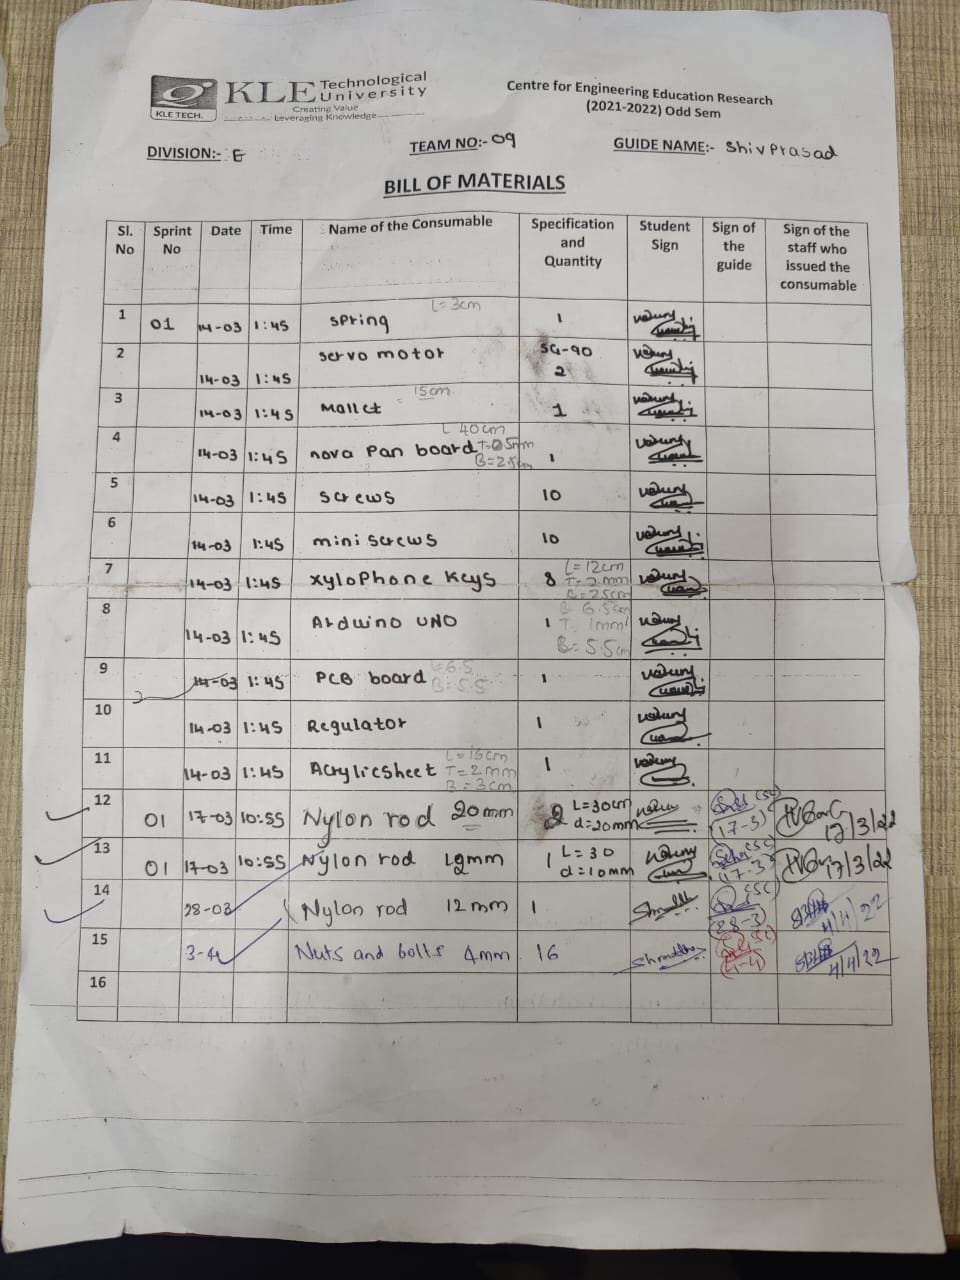 KLE TECH.
KLE Technological University
Creating Value
Leveraging Knowledge
Centre for Engineering Education Research
(2021-2022) Odd Sem
DIVISION:- E
TEAM NO:- 09
GUIDE NAME:- Shivprasad
BILL OF MATERIALS
Sl. No Sprint No Date Time Name of the Consumable Specification and Quantity Student Sign Sign of the guide Sign of the staff who issued the consumable
1 01 14-03 1:45 spring L=3cm 1
2 14-03 1:45 servo motor SG-90 2
3 14-03 1:45 Mallet 15cm 1
4 14-03 1:45 nova pan board L 40cm B=2.5cm 1
5 14-03 1:45 screws 10
6 14-03 1:45 mini screws 10
7 14-03 1:45 xylophone keys 8 L=12cm T=2mm B=2.5cm
8 14-03 1:45 Arduino UNO 1 6.5cm T. 1mm B=5.5cm
9 14-03 1:45 PCB board L=6.5 B=5.5 1
10 14-03 1:45 Regulator 1
11 14-03 1:45 Acrylicsheet L=16cm T=2mm B=3cm 1
12 01 17-03 10:55 Nylon rod 20mm 2 L=30cm d=20mm (17-3) 17/3/22
13 01 17-03 10:55 Nylon rod 12mm 1 L=30 d=10mm (17-3) 17/3/22
14 28-03 Nylon rod 12mm 1 Shraddha (28-3) 4/4/22
15 3-4 Nuts and bolts 4mm 16 Shraddha (4-4) 4/4/22
16